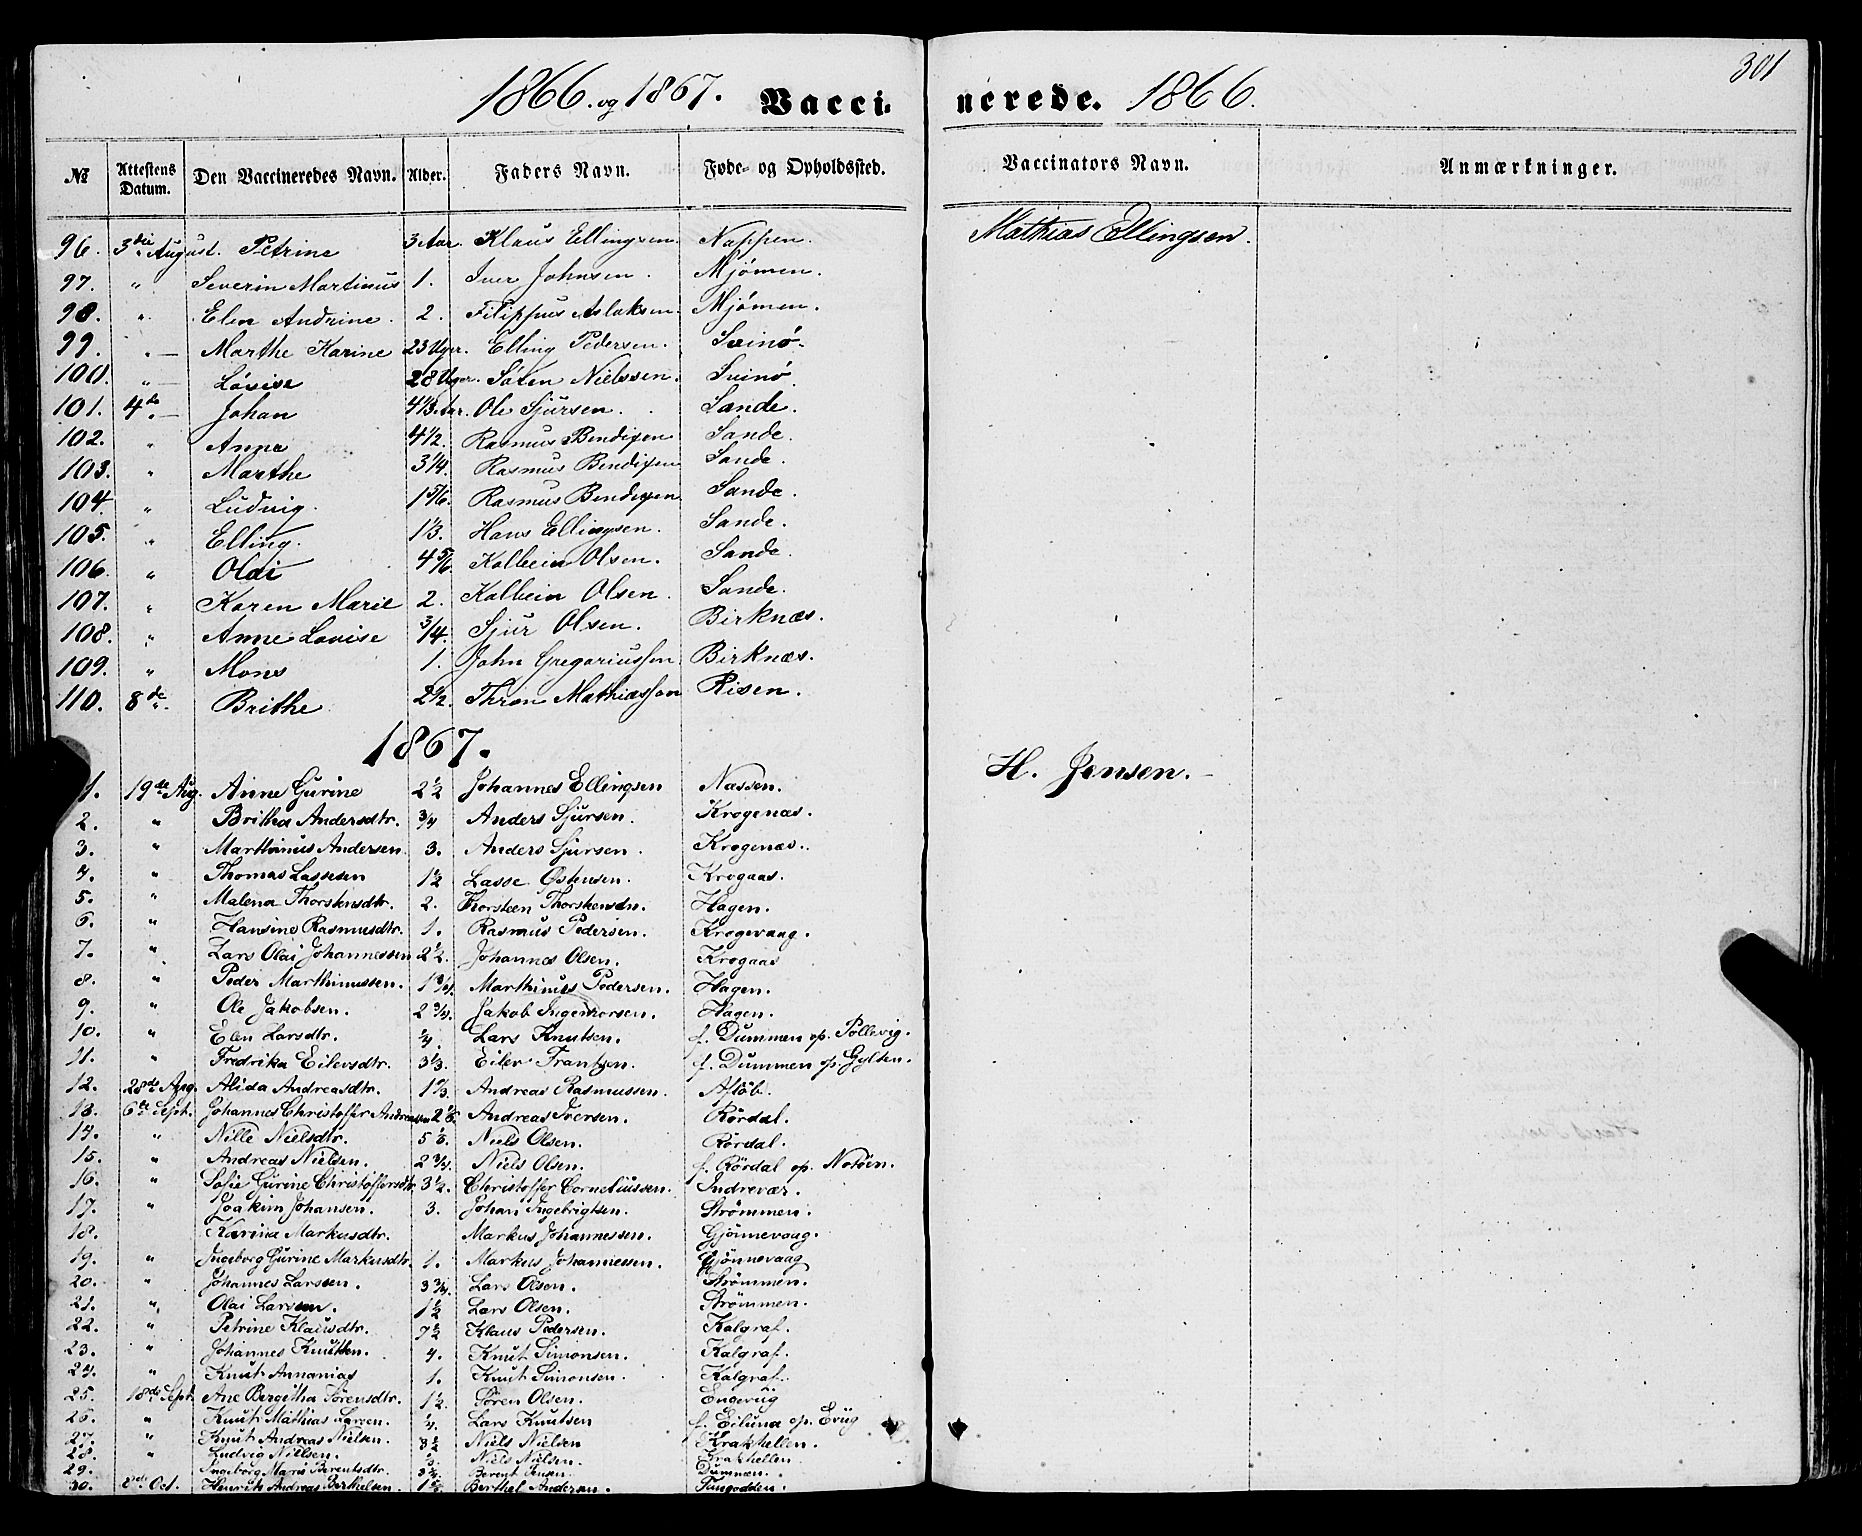 301
1866. og 1867. Vacci- nerede. 1866.
№ Attestens Datum. Den Vaccineredes Navn. Alder. Faders Navn. Føde- og Opholdssted. Vaccinators Navn. Anmærkninger.
96. 3die August. Petrine 3 Aar. Klaus Ellingsen. Nappen. Mathias Ellingsen.
97. " Severin Martinus 1. Iver Johnsen. Mjömen.
98. " Elen Andrine. 2. Filippus Aslaksen. Mjömen.
99. " — Marthe Karine 23 Uger. Elling Pedersen. Svinö.
100. " — Lovise 28 Uger. Sören Nielssen. Svinö.
101. 4de — Johan 4 1/3 Aar. Ole Sjursen. Sande.
102. " Anne 4 1/2. Rasmus Bendixen Sande.
103. " Marthe 3 1/4. Rasmus Bendixen Sande.
104. " Ludvig. 1 5/6. Rasmus Bendixen Sande.
105. " Elling. 1 1/3. Hans Ellingsen. Sande.
106. " Olai 4 5/6. Kolbein Olsen. Sande.
107. " Karen Marie 2. Kolbein Olsen. Sande.
108. " Anne Lovise 3/4. Sjur Olsen. Birknæs.
109. " Mons 1. John Gregoriussen. Birknæs.
110. 8de " Brithe 2 1/2. Thron Mathiassen Risen.
1867.
1. 19de Aug. Anne Gurine 2 1/2 Johannes Ellingsen Nassen. H. Jensen. —
2. " Britha Andersdtr. 3/4 Anders Sjursen. Krogenæs.
3. " Marthinus Andersen. 3. Anders Sjursen. Krogenæs.
4. " Thomas Lassesen 1 1/2 Lasse Østensen. Krogaas.
5. " Malena Thorstensdtr. 2. Thorsteen Thorstensen. Hagen.
6. " Hansine Rasmusdtr. 1. Rasmus Pedersen. Krogevaag.
7. " Lars Olai Johannessen 2 1/2. Johannes Olsen. Krogaas
8. " Peder Marthinussen. 1 3/4. Marthinus Pedersen. Hagen.
9. " Ole Jakobsen. 2 3/4. Jakob Hagen.
10. " Elen Larsdtr. 1/4. Lars Knutsen. f. Dummen op. Pollevig.
11. " Fredrika Eilersdtr. 3 1/3. Eiler Frantzen. f. Dummen op. Gylten.
12. 28de Aug. Alida Andreasdtr. Andreas Rasmussen.
13. 6te Sept. Johannes Christoffer Andreassen Andreas Iversen. Rördal.
14. " Nille Nielsdtr. 5 1/3. Niels Olsen. Rördal.
15. " Andreas Nielsen. 2 3/4. Niels Olsen. f. Rördal op. Notöen.
16. " Sofie Gurine Christoffersdtr. 3 1/2. Christoffer Corneliussen. Indrevær.
17. " Joakim Johansen. 3. Johan Ingebrigtsen. Strömmen.
18. Karina Markusdtr. Markus Johannessen. Gjönnevaag.
19. " Ingeborg Gurine Markusdtr. 1. Markus Johannessen. Gjönnevaag
20. " Johannes Larssen. 3 3/4. Lars Olsen. Strömmen.
21. " Olai Larssen. 1 1/2 Lars Olsen. Strömmen.
22. " Petrine Klausdtr. 7 1/2 Klaus Pedersen. Kalgraf.
23. " Johannes Knutsen. 4. Knut Simonsen. Kalgraf.
24. " Knut Annanias 1. Knut Simonsen. Kalgraf.
25 18de Sept. Ane Bergitha Sörensdtr. 1 1/2. Sören Olsen. Engevig
26. " Knut Mathias Larsen. 1/4. Lars Knutsen f. Eilund op. Evig
27. " Knut Andreas Nielsen. 3 1/2 Niels Nielsen Krakhellen.
28. " Ludvig Nielsen. 1/3. Niels Nielsen. Krakhellen.
29. Ingeborg Marie Berentsdtr. Berent Jensen Dummen.
30. 8de Oct. Henrik Andreas Berthelsen. Berthel Andersen. Tangodden.